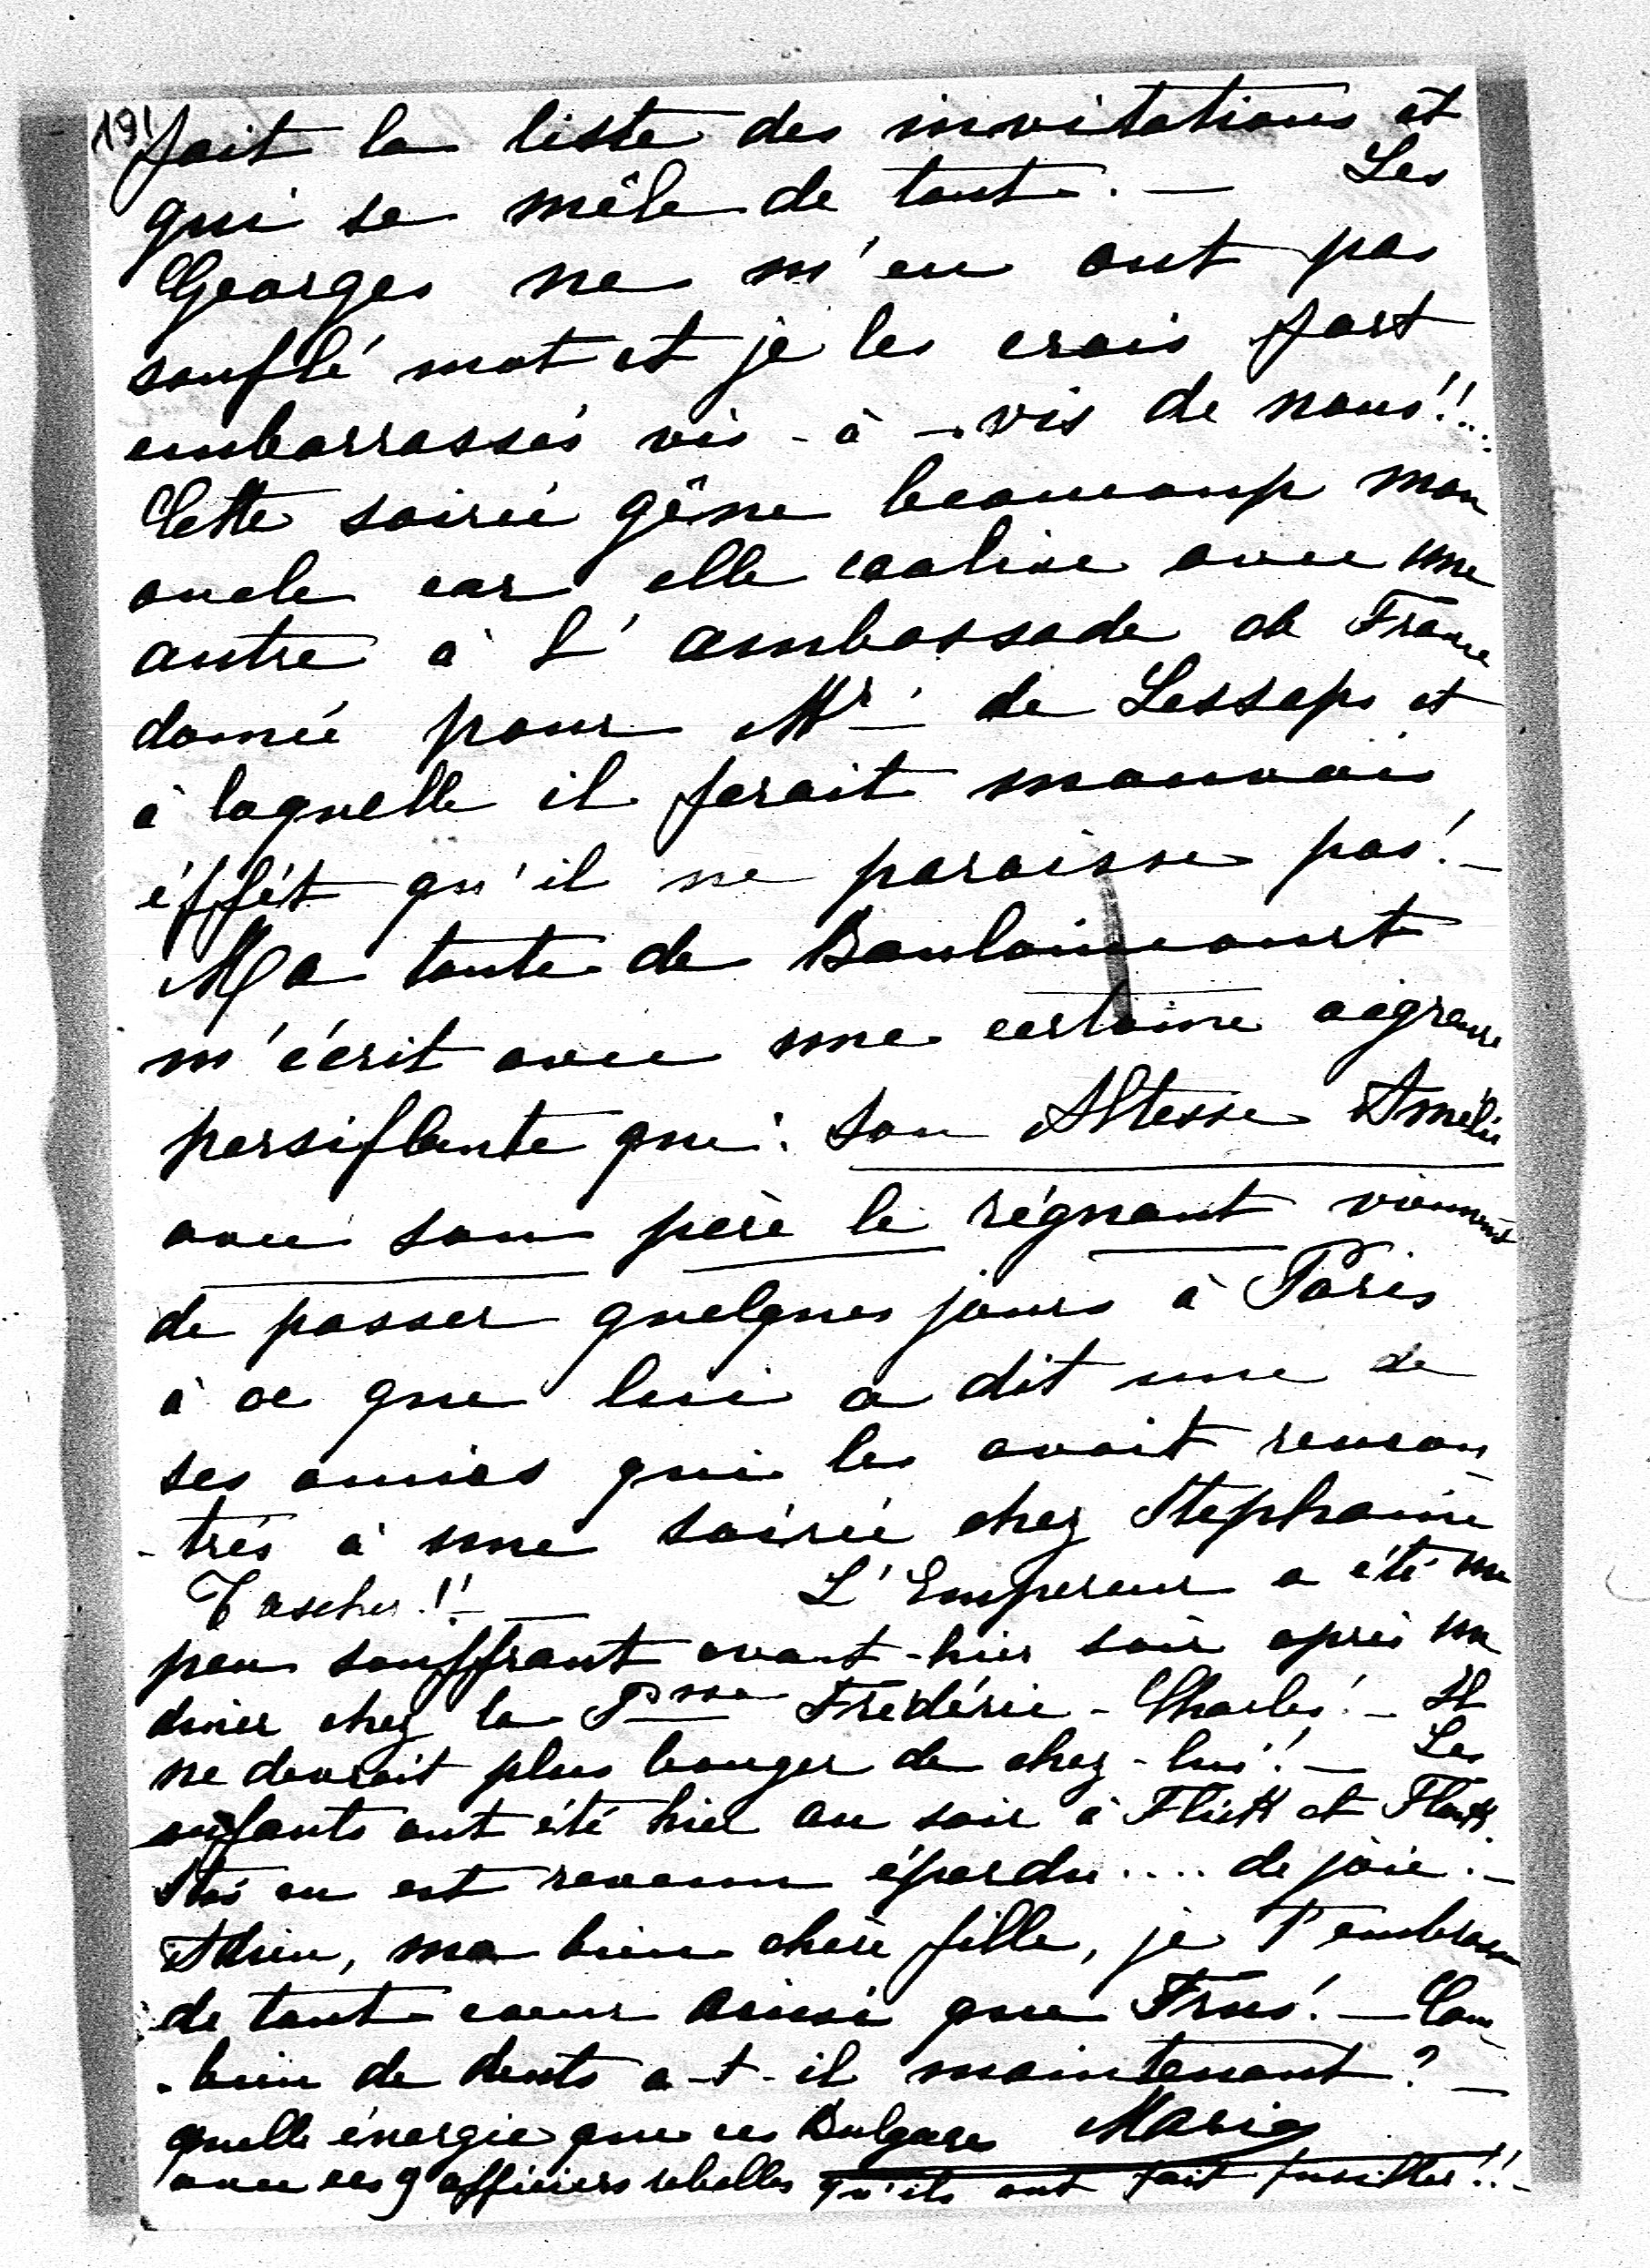 191
fait la liste des invitations et
qui se mêle de tout. — Les
Georges ne m'en ont pas
soufflé mot et je les crois fort
embarrassés vis-à-vis de nous!!...
Cette soirée gêne beaucoup mon
oncle car elle coalise avec une
autre à L'ambassade de France
donnée pour Mr. de Lesseps et
à laquelle il ferait mauvais
éffét qu'il ne paraisse pas! —
Ma tante de Baulaincourt
m'écrit avec une certaine aigreur
persiflante que: Son Altesse Amélie
avec son père le régnant viennent
de passer quelques jours à Paris
à ce que lui a dit une de
ses amies qui les avait rencon
-trés à une soirée chez Stephanie
Tascher!! — L'Empereur a été un
peu souffrant avant-hier soir après un
diner chez la Psse Frédéric-Charles! — Il
ne devrait plus bouger de chez-lui! — Les
enfants ont été hier au soir à Flick et Flock.
en est revenu éperdu.... de joie. —
Adieu, ma bien chère fille, je t'embrasse
de tout coeur ainsi que! — Com
-bien de dents a-t-il maintenant? —
quelle énergie que ces Bulgares Marie
avec ces 9 officiers rebelles qu'ils ont fait fusiller!! —